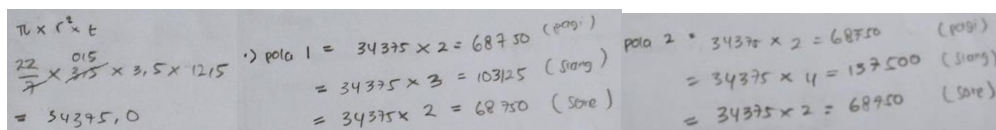 π x r² x t
22/7 x 3,5 x 3,5 x 12,5
0,5
= 34375,0
•) pola 1 = 34375 x 2 = 68750 (pagi)
= 34375 x 3 = 103125 (siang)
= 34375 x 2 = 68750 (sore)
pola 2 • 34375 x 2 = 68750 (pagi)
= 34375 x 4 = 137500 (siang)
= 34375 x 2 = 68750 (sore)